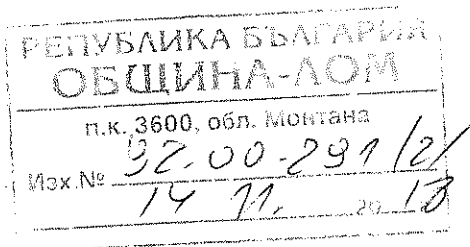 РЕПУБЛИКА БЪЛГАРИЯ
ОБЩИНА-ЛОМ
п.к. 3600, обл. Монтана
Изх.№ 92-00-291/2/
14 11. 2013